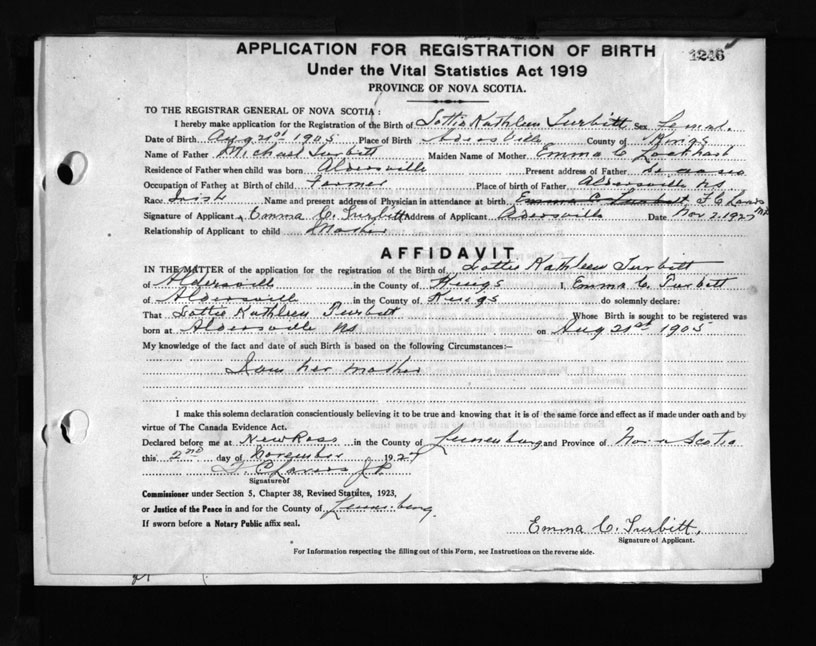 APPLICATION FOR REGISTRATION OF BIRTH
1246
Under the Vital Statistics Act 1919
PROVINCE OF NOVA SCOTIA.
TO THE REGISTRAR GENERAL OF NOVA SCOTIA :
I hereby make application for the Registration of the Birth of Lottie Kathleen Turbitt Sex Female
Date of Birth Aug 21st 1905 Place of Birth Aldersville County of Kings
Name of Father Michael Turbitt Maiden Name of Mother Emma C Lockhart
Residence of Father when child was born Aldersville Present address of Father
Occupation of Father at Birth of child Farmer Place of birth of Father Aldersville NS
Race Irish Name and present address of Physician in attendance at birth. Emma C Turbitt
Signature of Applicant Emma C. Turbitt Address of Applicant Aldersville Date Nov 2. 1927
Relationship of Applicant to child Mother
AFFIDAVIT
IN THE MATTER of the application for the registration of the Birth of Lottie Kathleen Turbitt
of Aldersville in the County of Kings I, Emma C. Turbitt
of Aldersville in the County of Kings do solemnly declare:
That Lottie Kathleen Turbitt Whose Birth is sought to be registered was
born at Aldersville NS on Aug 21st 1905
My knowledge of the fact and date of such Birth is based on the following Circumstances:—
I am her mother
I make this solemn declaration conscientiously believing it to be true and knowing that it is of the same force and effect as if made under oath and by
virtue of The Canada Evidence Act.
Declared before me at New Ross in the County of Lunenburg and Province of Nova Scotia
this 2nd day of November 1927
J.P.
Signature of
Commissioner under Section 5, Chapter 38, Revised Statutes, 1923,
or Justice of the Peace in and for the County of Lunenburg
If sworn before a Notary Public affix seal.
Emma C. Turbitt,
Signature of Applicant.
For Information respecting the filling out of this Form, see Instructions on the reverse side.